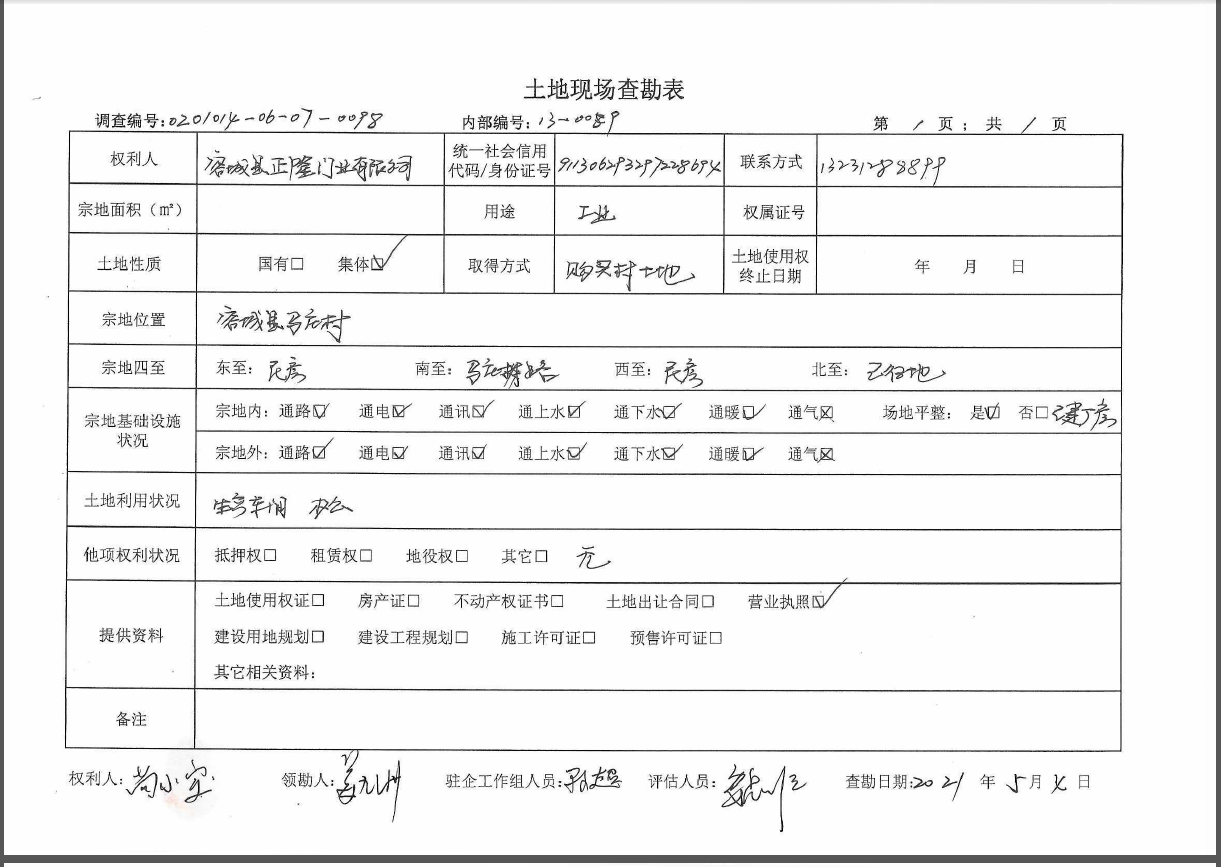 土地现场查勘表
调查编号:0201014-06-07-0098 内部编号:13-0089 第 1 页; 共 1 页
权利人 容城县正隆门业有限公司 统一社会信用代码/身份证号 911306293297228694 联系方式 13231288899
宗地面积(㎡) 用途 工业 权属证号
土地性质 国有□ 集体☑ 取得方式 购买村土地 土地使用权终止日期 年 月 日
宗地位置 容城县马庄村
宗地四至 东至: 民房 南至: 马庄 西至: 民房 北至: 地
宗地基础设施状况 宗地内: 通路☑ 通电☑ 通讯☑ 通上水☑ 通下水☑ 通暖☑ 通气☒ 场地平整: 是☑ 否□ 建厂房
宗地外: 通路☑ 通电☑ 通讯☑ 通上水☑ 通下水☑ 通暖☑ 通气☒
土地利用状况 生产车间 办公
他项权利状况 抵押权□ 租赁权□ 地役权□ 其它□ 无
提供资料 土地使用权证□ 房产证□ 不动产权证书□ 土地出让合同□ 营业执照☑
建设用地规划□ 建设工程规划□ 施工许可证□ 预售许可证□
其它相关资料:
备注
权利人: 领勘人: 驻企工作组人员: 评估人员: 查勘日期:2021 年 5 月 日